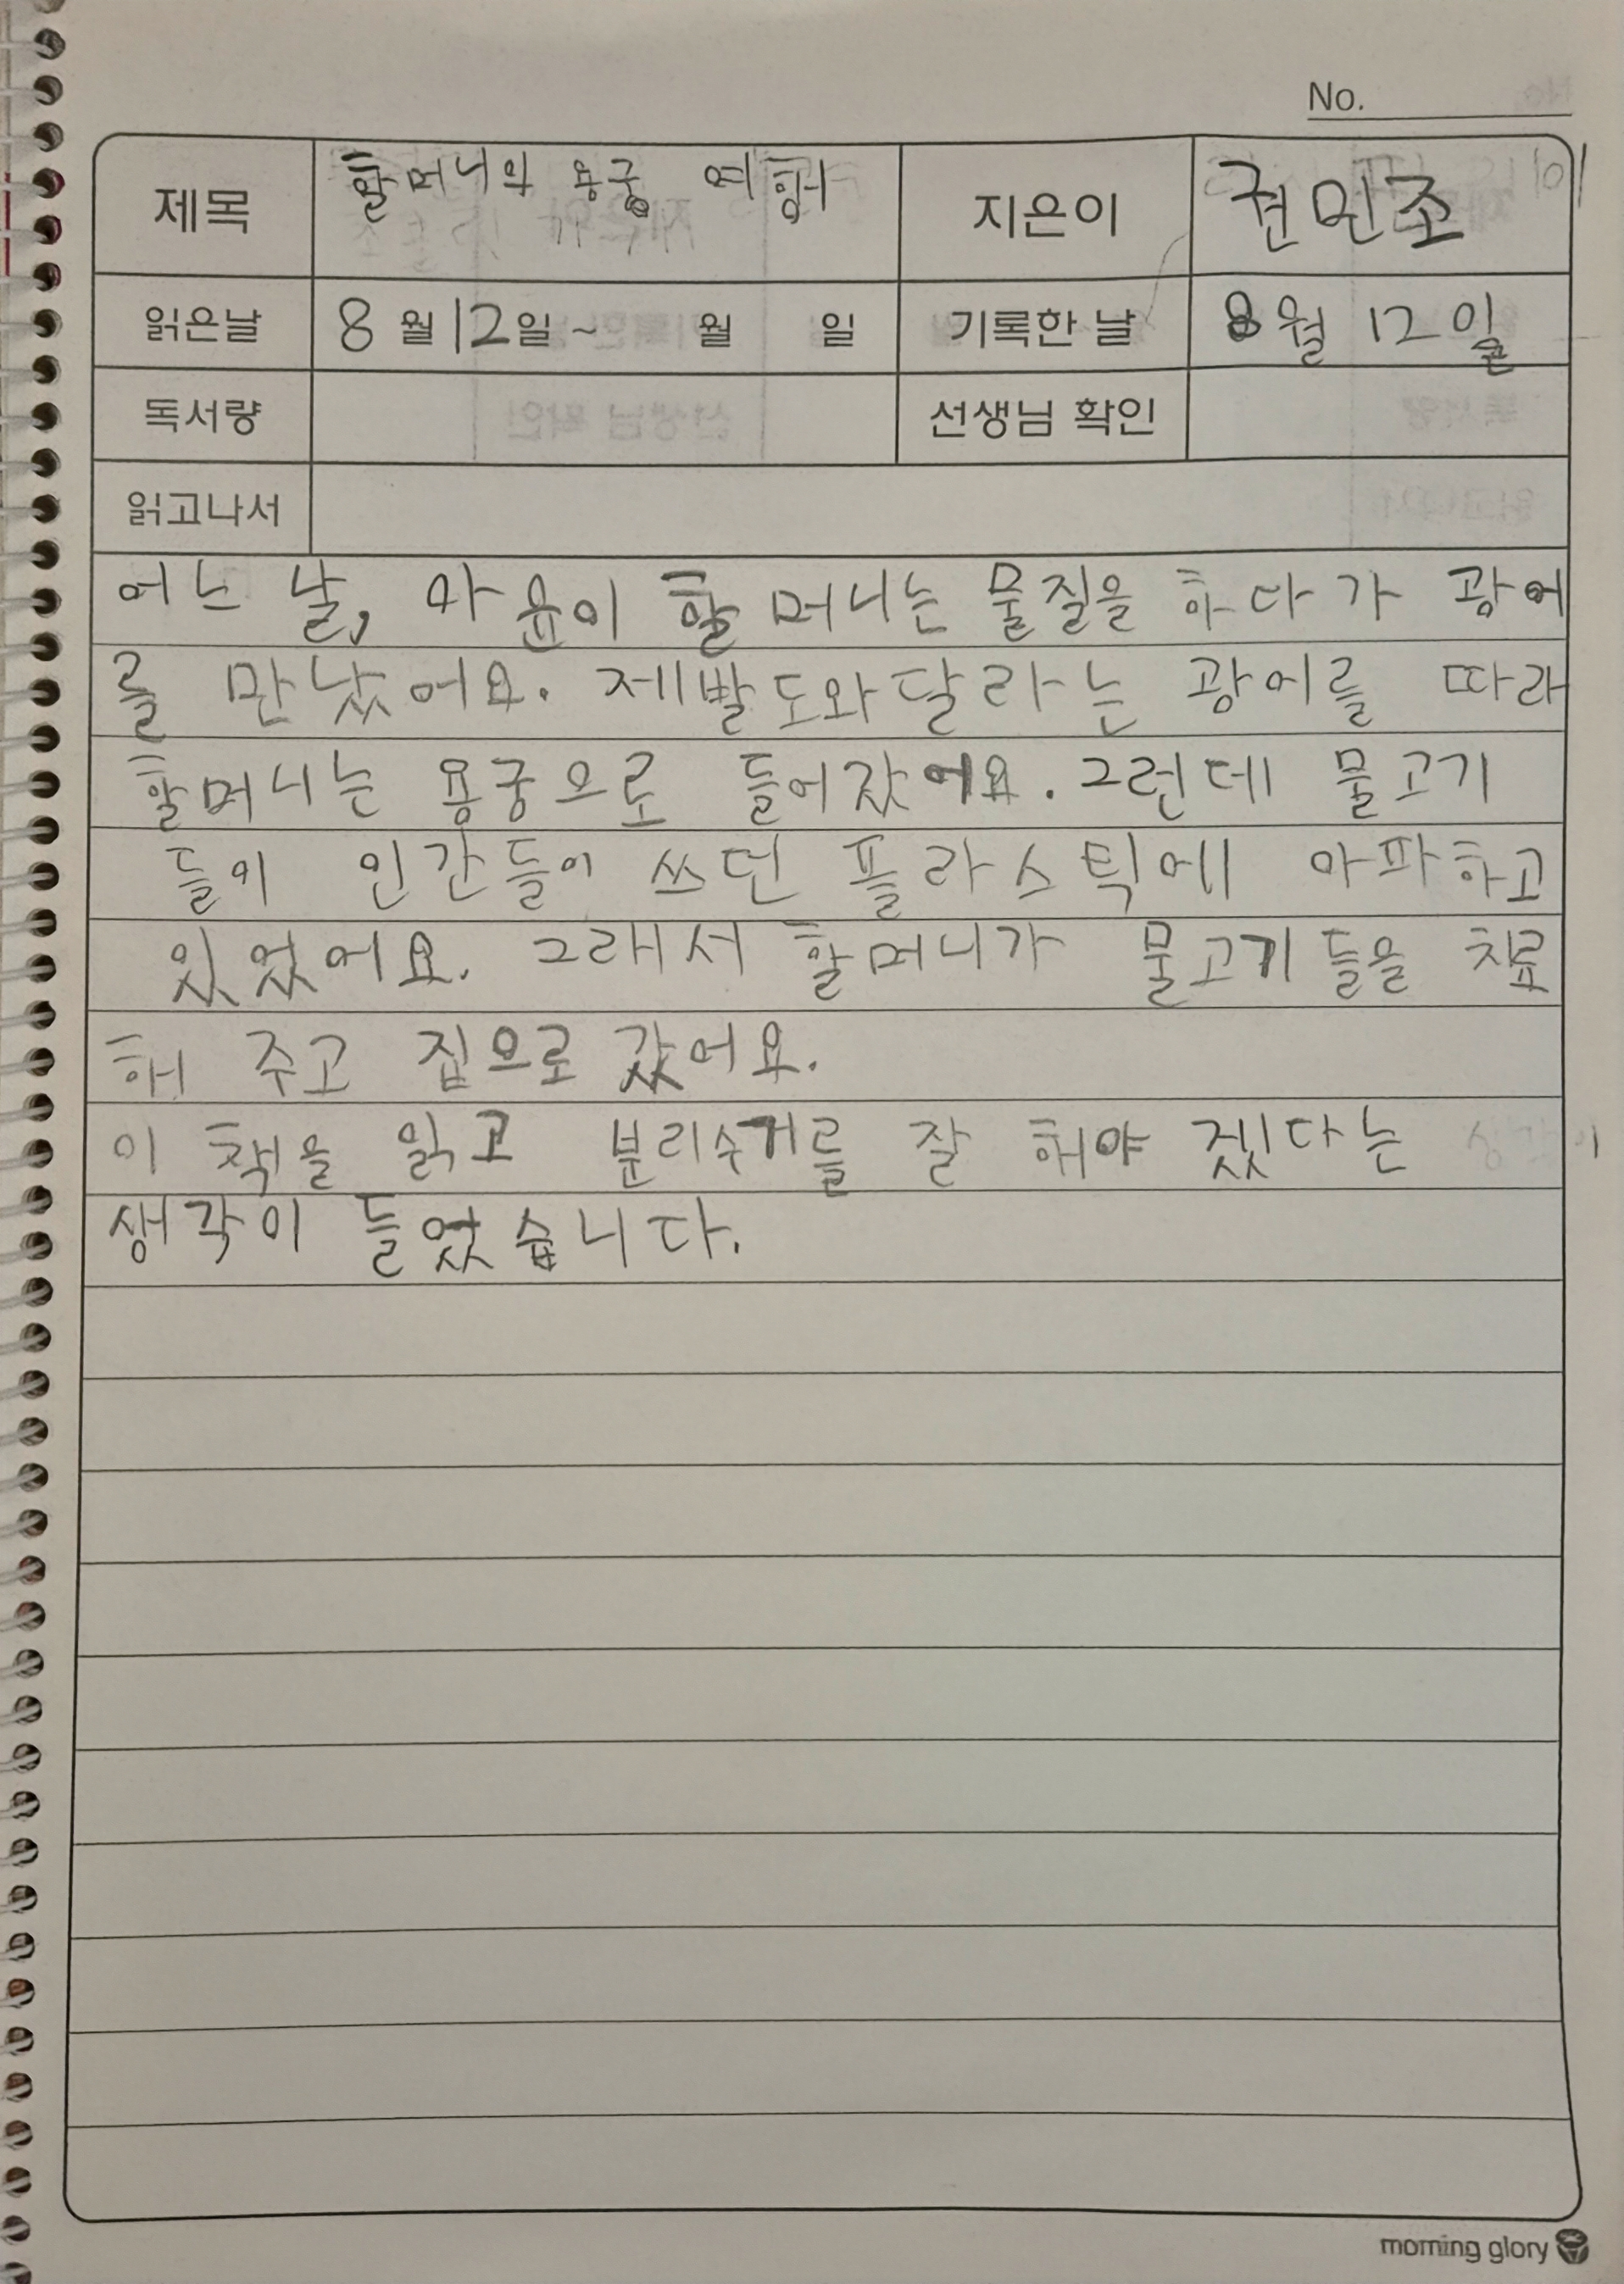 No.
제목 할머니의 용궁 여행 지은이 권민조
읽은날 8월 12일 ~ 월 일 기록한 날 8월 12일
독서량 선생님 확인
읽고나서
어느 날, 아윤이 할머니는 물질을 하다가 광어
를 만났어요. 제발도와달라는 광어를 따라
할머니는 용궁으로 들어갔어요. 그런데 물고기
들이 인간들이 쓰던 플라스틱에 아파하고
있었어요. 그래서 할머니가 물고기들을 치료
해 주고 집으로 갔어요.
이 책을 읽고 분리수거를 잘 해야 겠다는
생각이 들었습니다.
morning glory